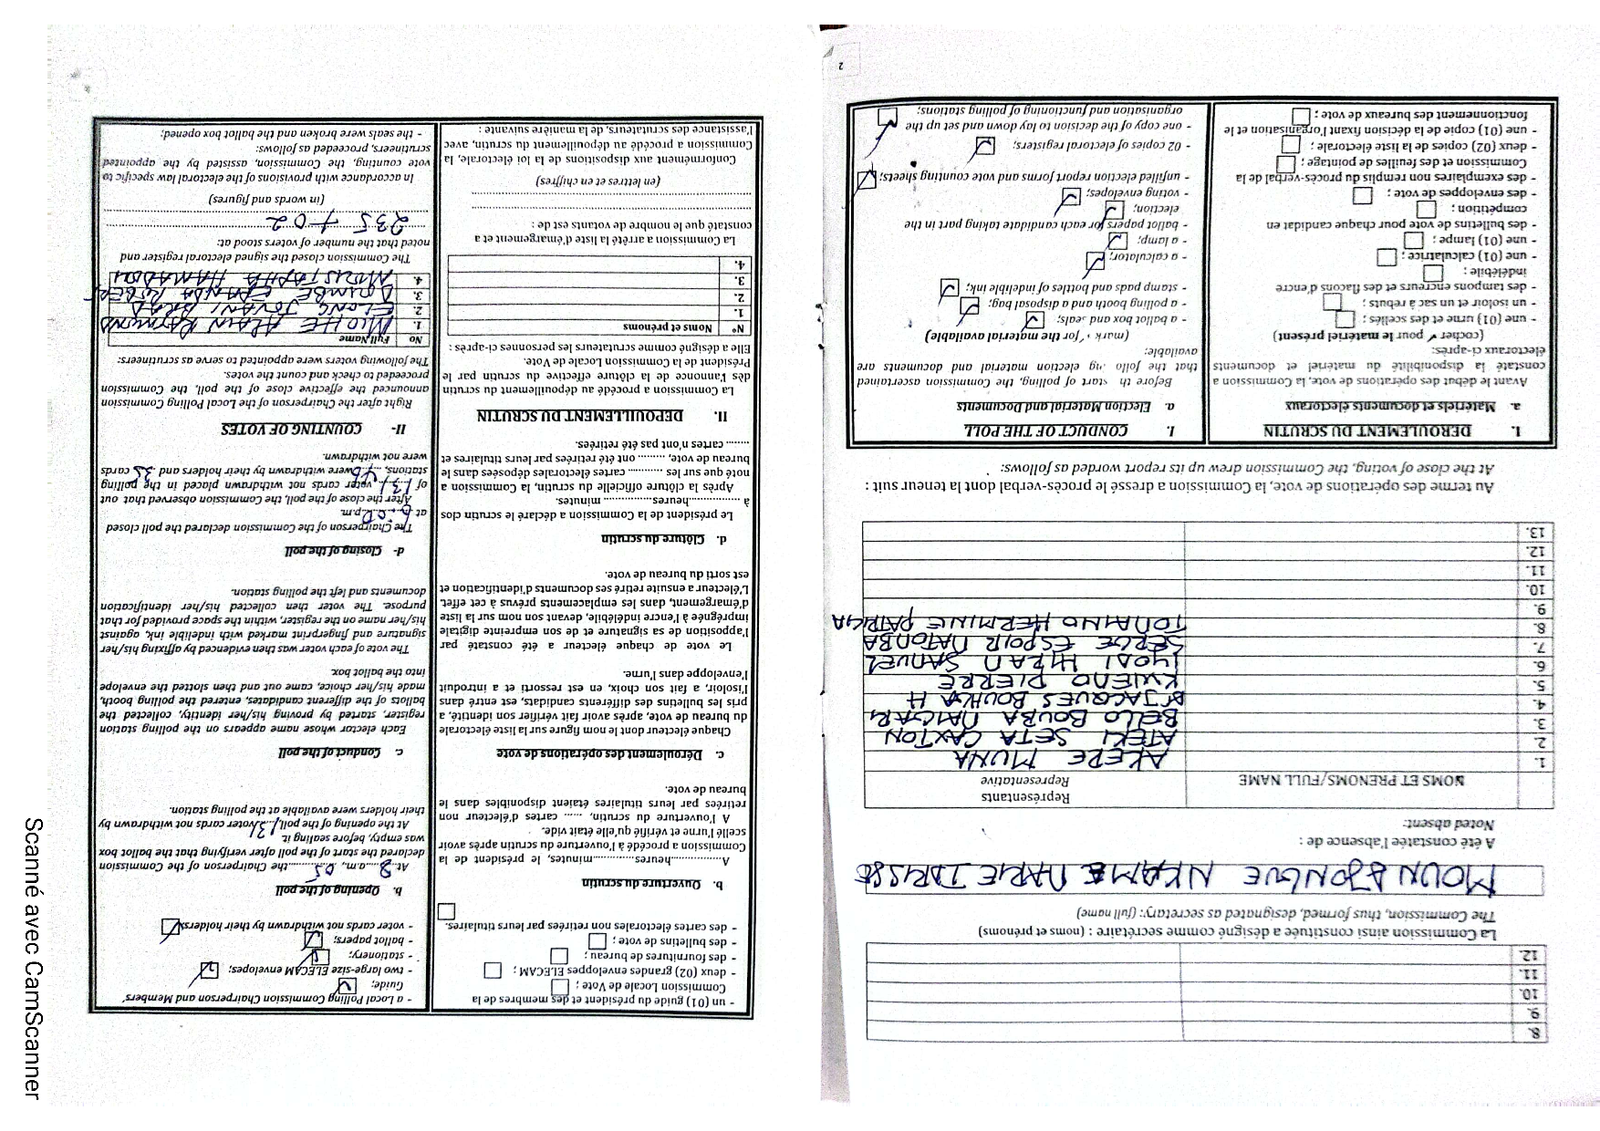 8.
9.
10.
11.
12.
La Commission ainsi constituée a désigné comme secrétaire : (noms et prénoms)
The Commission, thus formed, designated as secretary: (full name)
A été constatée l'absence de :
Noted absent:
NOMS ET PRENOMS/FULL NAME
Représentants
Representative
1. AKERE MUNA
2. ATEKI SETA CAXTON
3. BELLO BOUBA
4.
5. KWEMO PIERRE
6. IYODI HIRAM SAMUEL
7. SERGE ESPOIR MATOMBA
8. TOMAINO HERMINE PATRICIA
9.
10.
11.
12.
13.
Au terme des opérations de vote, la Commission a dressé le procès-verbal dont la teneur suit :
At the close of voting, the Commission drew up its report worded as follows:
I. DEROULEMENT DU SCRUTIN
a. Matériels et documents électoraux
Avant le début des opérations de vote, la Commission a
constaté la disponibilité du matériel et documents
électoraux ci-après:
(cocher ✓ pour le matériel présent)
- une (01) urne et des scellés ;
- un isoloir et un sac à rebuts ;
- des tampons encreurs et des flacons d'encre
indélébile ;
- une (01) calculatrice ;
- une (01) lampe ;
- des bulletins de vote pour chaque candidat en
compétition ;
- des enveloppes de vote ;
- des exemplaires non remplis du procès-verbal de la
Commission et des feuilles de pointage ;
- deux (02) copies de la liste électorale ;
- une (01) copie de la décision fixant l'organisation et le
fonctionnement des bureaux de vote ;
I. CONDUCT OF THE POLL
a. Election Material and Documents
Before the start of polling, the Commission ascertained
that the following election material and documents are
available:
(mark ✓ for the material available)
- a ballot box and seals;
- a polling booth and a disposal bag;
- stamp pads and bottles of indelible ink;
- a calculator;
- a lamp;
- ballot papers for each candidate taking part in the
election;
- voting envelopes;
- unfilled election report forms and vote counting sheets;
- 02 copies of electoral registers;
- one copy of the decision to lay down and set up the
organisation and functioning of polling stations;
2
- un (01) guide du président et des membres de la
Commission Locale de Vote ;
- deux (02) grandes enveloppes ELECAM ;
- des fournitures de bureau ;
- des bulletins de vote ;
- des cartes électorales non retirées par leurs titulaires.
b. Ouverture du scrutin
A............heures............minutes, le président de la
Commission a procédé à l'ouverture du scrutin après avoir
scellé l'urne et vérifié qu'elle était vide.
A l'ouverture du scrutin, ...... cartes d'électeur non
retirées par leurs titulaires étaient disponibles dans le
bureau de vote.
c. Déroulement des opérations de vote
Chaque électeur dont le nom figure sur la liste électorale
du bureau de vote, après avoir fait vérifier son identité, a
pris les bulletins des différents candidats, est entré dans
l'isoloir, a fait son choix, en est ressorti et a introduit
l'enveloppe dans l'urne.
Le vote de chaque électeur a été constaté par
l'apposition de sa signature et de son empreinte digitale
imprégnée à l'encre indélébile, devant son nom sur la liste
d'émargement, dans les emplacements prévus à cet effet.
L'électeur a ensuite retiré ses documents d'identification et
est sorti du bureau de vote.
d. Clôture du scrutin
Le président de la Commission a déclaré le scrutin clos
à ............heures............ minutes.
Après la clôture officielle du scrutin, la Commission a
noté que sur les ............ cartes électorales déposées dans le
bureau de vote, ......... ont été retirées par leurs titulaires et
....... cartes n'ont pas été retirées.
II. DEPOUILLEMENT DU SCRUTIN
La Commission a procédé au dépouillement du scrutin
dès l'annonce de la clôture effective du scrutin par le
Président de la Commission Locale de Vote.
Elle a désigné comme scrutateurs les personnes ci-après :
N° Noms et prénoms
1.
2.
3.
4.
La Commission a arrêté la liste d'émargement et a
constaté que le nombre de votants est de :
(en lettres et en chiffres)
Conformément aux dispositions de la loi électorale, la
Commission a procédé au dépouillement du scrutin, avec
l'assistance des scrutateurs, de la manière suivante :
- a Local Polling Commission Chairperson and Members'
Guide;
- two large-size ELECAM envelopes;
- stationery;
- ballot papers;
- voter cards not withdrawn by their holders.
b. Opening of the poll
At 8 a.m, 05 the Chairperson of the Commission
declared the start of the poll after verifying that the ballot box
was empty, before sealing it.
At the opening of the poll, 131 voter cards not withdrawn by
their holders were available at the polling station.
c. Conduct of the poll
Each elector whose name appears on the polling station
register, started by proving his/her identity, collected the
ballots of the different candidates, entered the polling booth,
made his/her choice, came out and then slotted the envelope
into the ballot box.
The vote of each voter was then evidenced by affixing his/her
signature and fingerprint marked with indelible ink, against
his/her name on the register, within the space provided for that
purpose. The voter then collected his/her identification
documents and left the polling station.
d- Closing of the poll
The Chairperson of the Commission declared the poll closed
at 6:00 p.m.
After the close of the poll, the Commission observed that out
of 131 voter cards not withdrawn placed in the polling
stations, were withdrawn by their holders and 35 cards
were not withdrawn.
II- COUNTING OF VOTES
Right after the Chairperson of the Local Polling Commission
announced the effective close of the poll, the Commission
proceeded to check and count the votes.
The following voters were appointed to serve as scrutineers:
No Full Name
1. ALAIN RAYMOND
2. ELONG JOVANI BRAD
3. ROBERT
4. MOUSTAPHA HAMADOU
The Commission closed the signed electoral register and
noted that the number of voters stood at:
235 + 02
(in words and figures)
In accordance with provisions of the electoral law specific to
vote counting, the Commission, assisted by the appointed
scrutineers, proceeded as follows:
- the seals were broken and the ballot box opened;
Scanné avec CamScanner